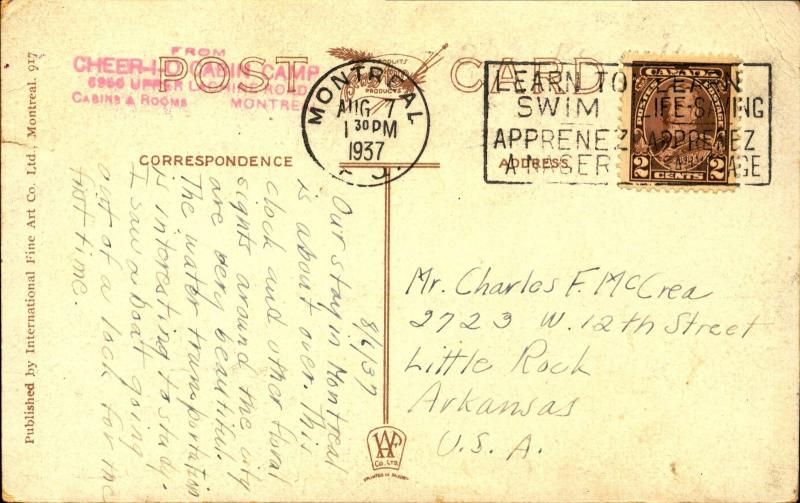 FROM
CHEERI-O CABIN CAMP
6950 UPPER LACHINE ROAD
CABINS & ROOMS MONTREAL
POST CARD
PRODUITS
PRODUCTS
MONTREAL
AUG 7
1 30 PM
1937
LEARN TO LEARN
SWIM LIFE-SAVING
APPRENEZ APPRENEZ
A NAGER
CANADA
2 CENTS 2
CORRESPONDENCE
ADDRESS
8/6/37
Our stay in Montreal
is about over. This
clock and other floral
sights around the city
are very beautiful.
The water transportation
is interesting to study.
I saw a boat going
out of a lock for my
first time.
Mr. Charles F. McCrea
2723 W. 12th Street
Little Rock
Arkansas
U.S.A.
Published by International Fine Art Co. Ltd., Montreal. 917
CO. LTD.